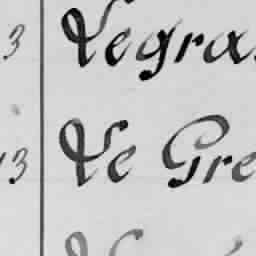 3 Legra
13 Le Gre